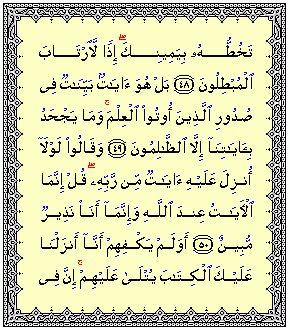 تَخُطُّهُۥ بِيَمِينِكَ ۖ إِذًا لَّٱرْتَابَ
ٱلْمُبْطِلُونَ ﴿٤٨﴾ بَلْ هُوَ ءَايَٰتٌۢ بَيِّنَٰتٌ فِى
صُدُورِ ٱلَّذِينَ أُوتُوا۟ ٱلْعِلْمَ ۚ وَمَا يَجْحَدُ
بِـَٔايَٰتِنَآ إِلَّا ٱلظَّٰلِمُونَ ﴿٤٩﴾ وَقَالُوا۟ لَوْلَآ
أُنزِلَ عَلَيْهِ ءَايَٰتٌ مِّن رَّبِّهِۦ ۖ قُلْ إِنَّمَا
ٱلْءَايَٰتُ عِندَ ٱللَّهِ وَإِنَّمَآ أَنَا۠ نَذِيرٌ
مُّبِينٌ ﴿٥٠﴾ أَوَلَمْ يَكْفِهِمْ أَنَّآ أَنزَلْنَا
عَلَيْكَ ٱلْكِتَٰبَ يُتْلَىٰ عَلَيْهِمْ ۚ إِنَّ فِى